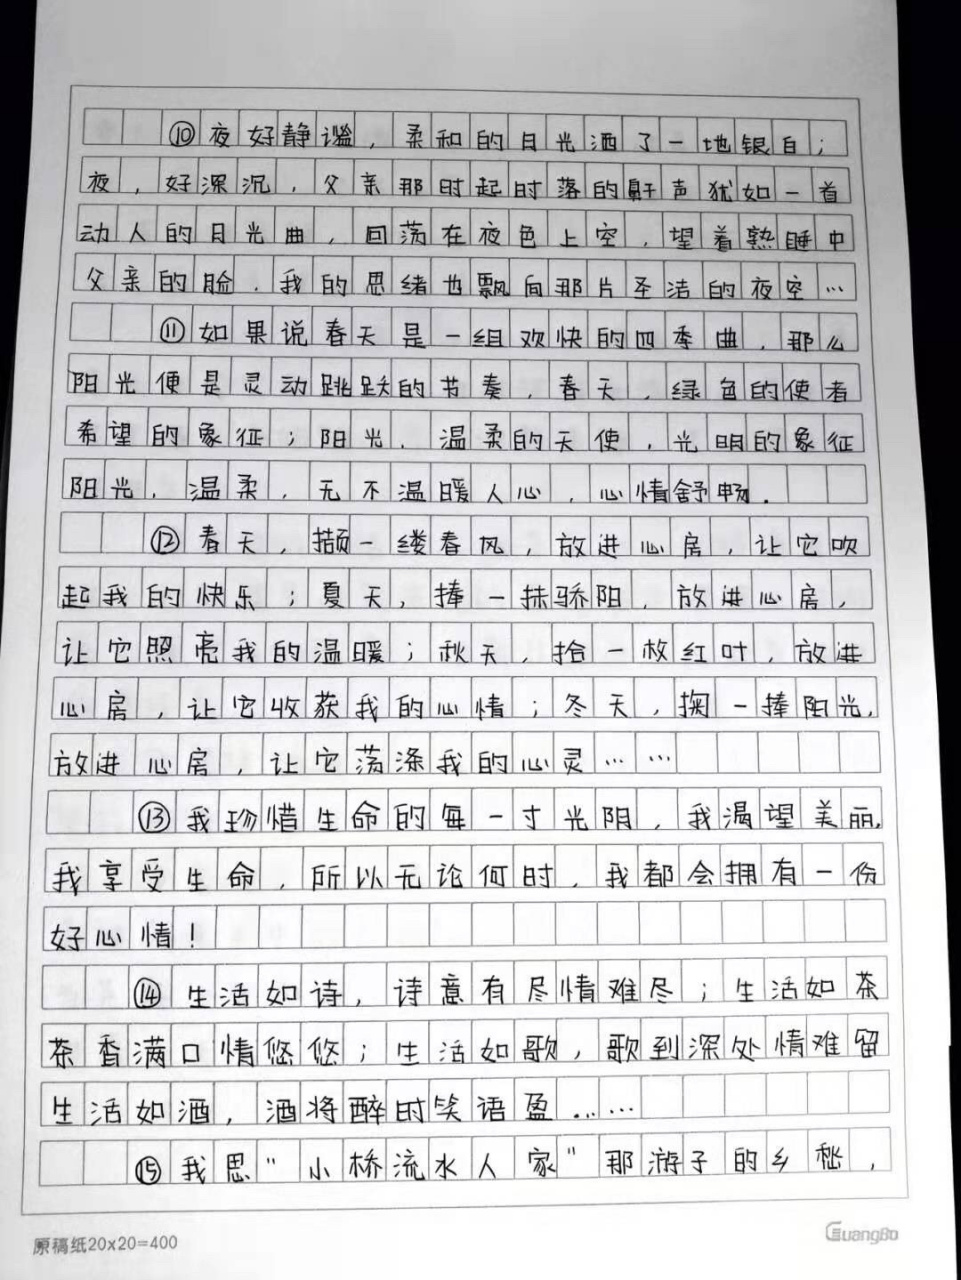 ⑩夜好静谧，柔和的月光洒了一地银白；
夜，好深沉，父亲那时起时落的鼾声犹如一首
动人的月光曲，回荡在夜色上空，望着熟睡中
父亲的脸．我的思绪也飘向那片圣洁的夜空…
⑪如果说春天是一组欢快的四季曲，那么
阳光便是灵动跳跃的节奏，春天，绿色的使者
希望的象征；阳光，温柔的天使，光明的象征
阳光，温柔，无不温暖人心，心情舒畅．
⑫春天，撷一缕春风，放进心房，让它吹
起我的快乐；夏天，捧一抹骄阳，放进心房，
让它照亮我的温暖；秋天，拾一枚红叶，放进
心房，让它收获我的心情；冬天，掬一捧阳光，
放进心房，让它荡涤我的心灵……
⑬我珍惜生命的每一寸光阴，我渴望美丽，
我享受生命，所以无论何时，我都会拥有一份
好心情！
⑭生活如诗，诗意有尽情难尽；生活如茶
茶香满口情悠悠；生活如歌，歌到深处情难留
生活如酒，酒将醉时笑语盈……
⑮我思“小桥流水人家”那游子的乡愁，
原稿纸20x20=400
GuangBo